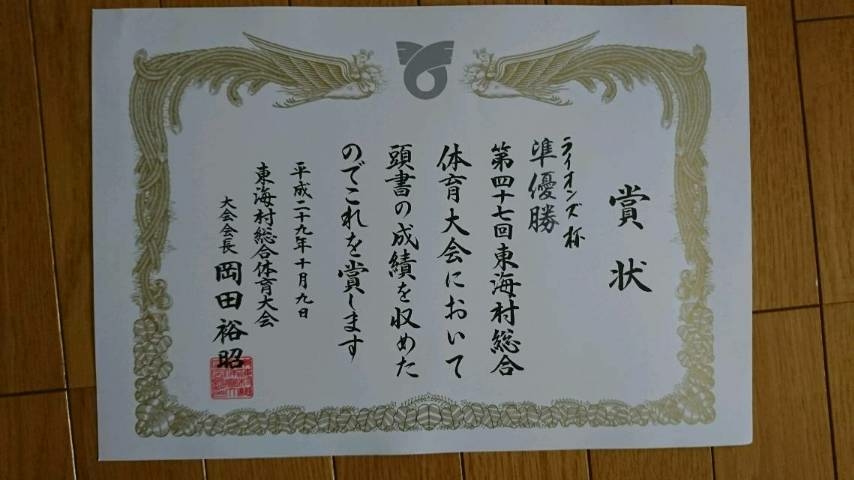 賞状
ライオンズ杯
準優勝
第四十七回東海村総合
体育大会において
頭書の成績を収めた
のでこれを賞します
平成二十九年十月九日
東海村総合体育大会
大会会長 岡田裕昭